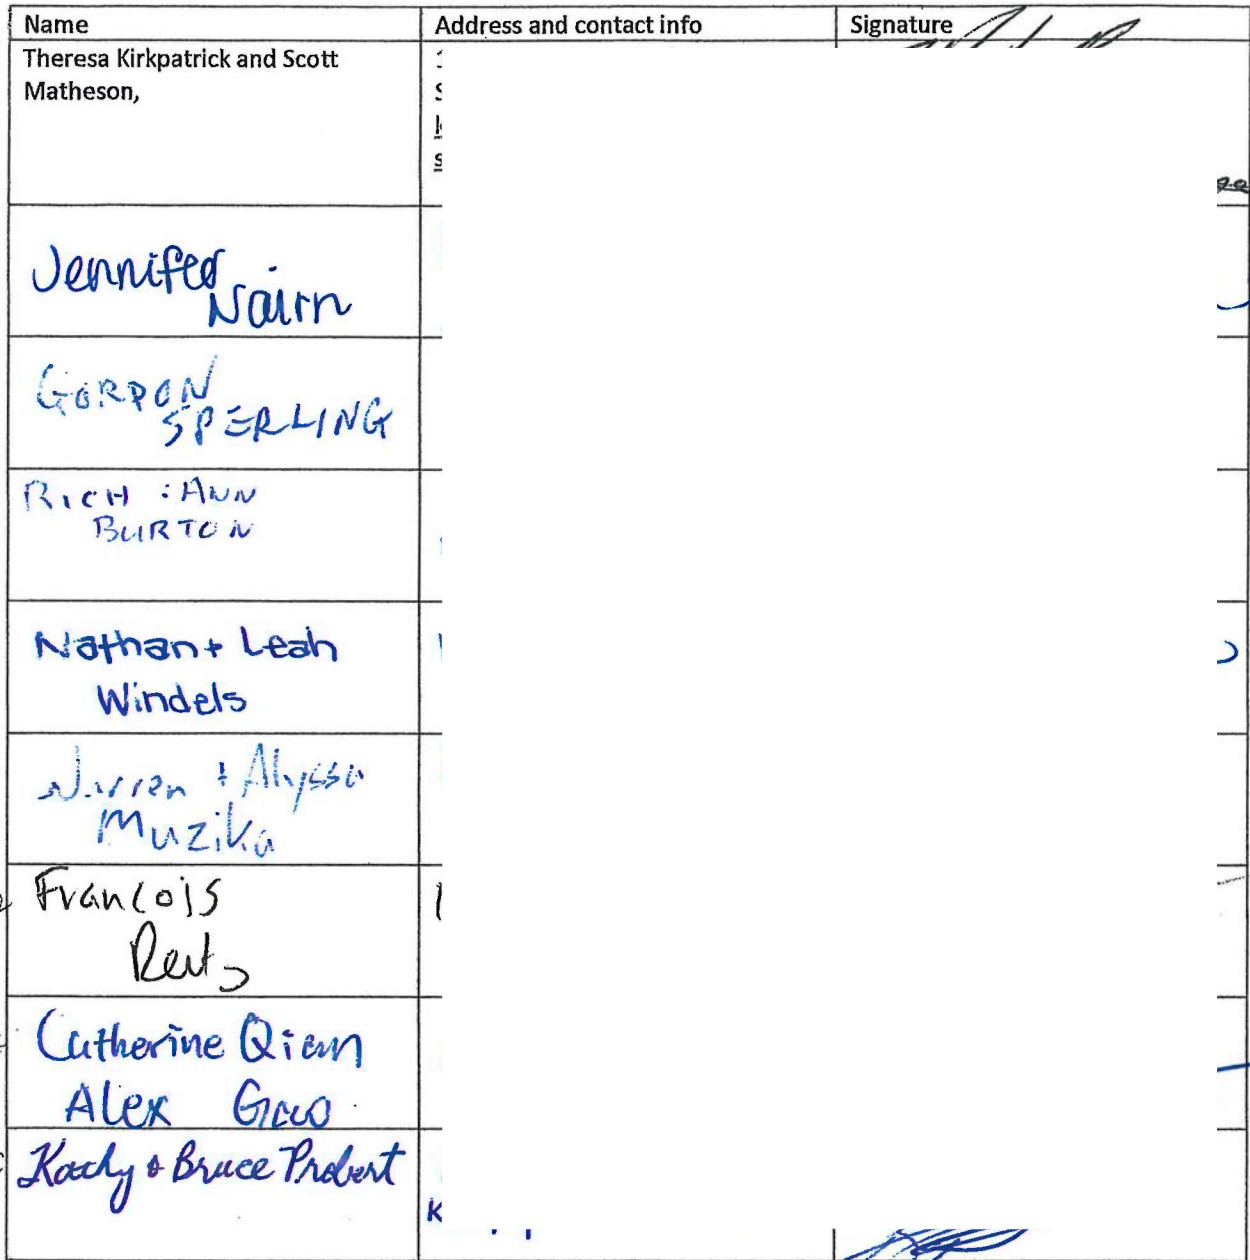 Name Address and contact info Signature
Theresa Kirkpatrick and Scott
Matheson,
Jennifer
Nairn
GORDON
SPERLING
RICH : ANN
BURTON
Nathan + Leah
Windels
+ Alyssa
Muzika
Francois
Catherine Qian
Alex Gao
Kathy & Bruce Probert
K